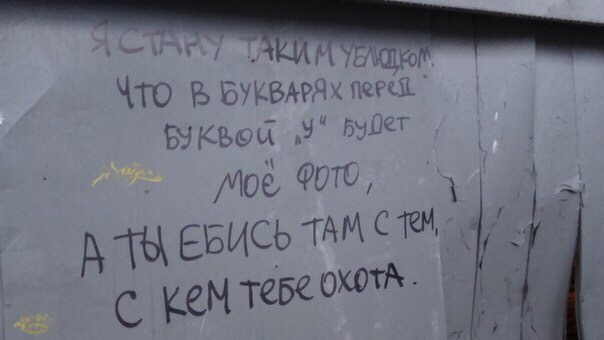 Я СТАНУ ТАКИМ УБЛЮДКОМ
ЧТО В БУКВАРЯХ ПЕРЕД
БУКВОЙ „У“ БУДЕТ
МОЁ ФОТО,
А ТЫ ЕБИСЬ ТАМ С ТЕМ,
С КЕМ ТЕБЕ ОХОТА.